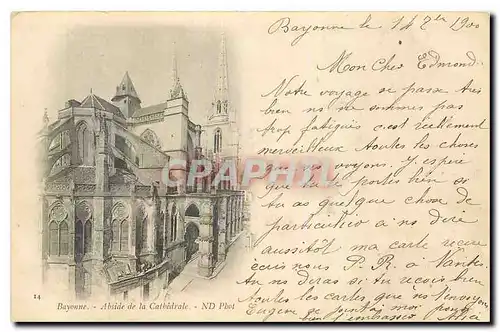 Bayonne le 14 7bre 1900
Mon Cher Edmond
Notre voyage se passe très
bien ns ne sommes pas
trop fatigués c'est réellement
merveilleux toutes les choses
que ns voyons. J'espère
que tu te portes bien si
tu as quelque chose de
particulier à ns dire
aussitôt ma carte reçue
écris nous P. R. à Nantes.
tu ns diras si tu reçois bien
toutes les cartes que ns t'envoyons
Eugène se joint à moi pour
bien t'embrasser Alice
CARTE POSTALE
24 Bayonne. - Abside de la Cathédrale. - ND Phot